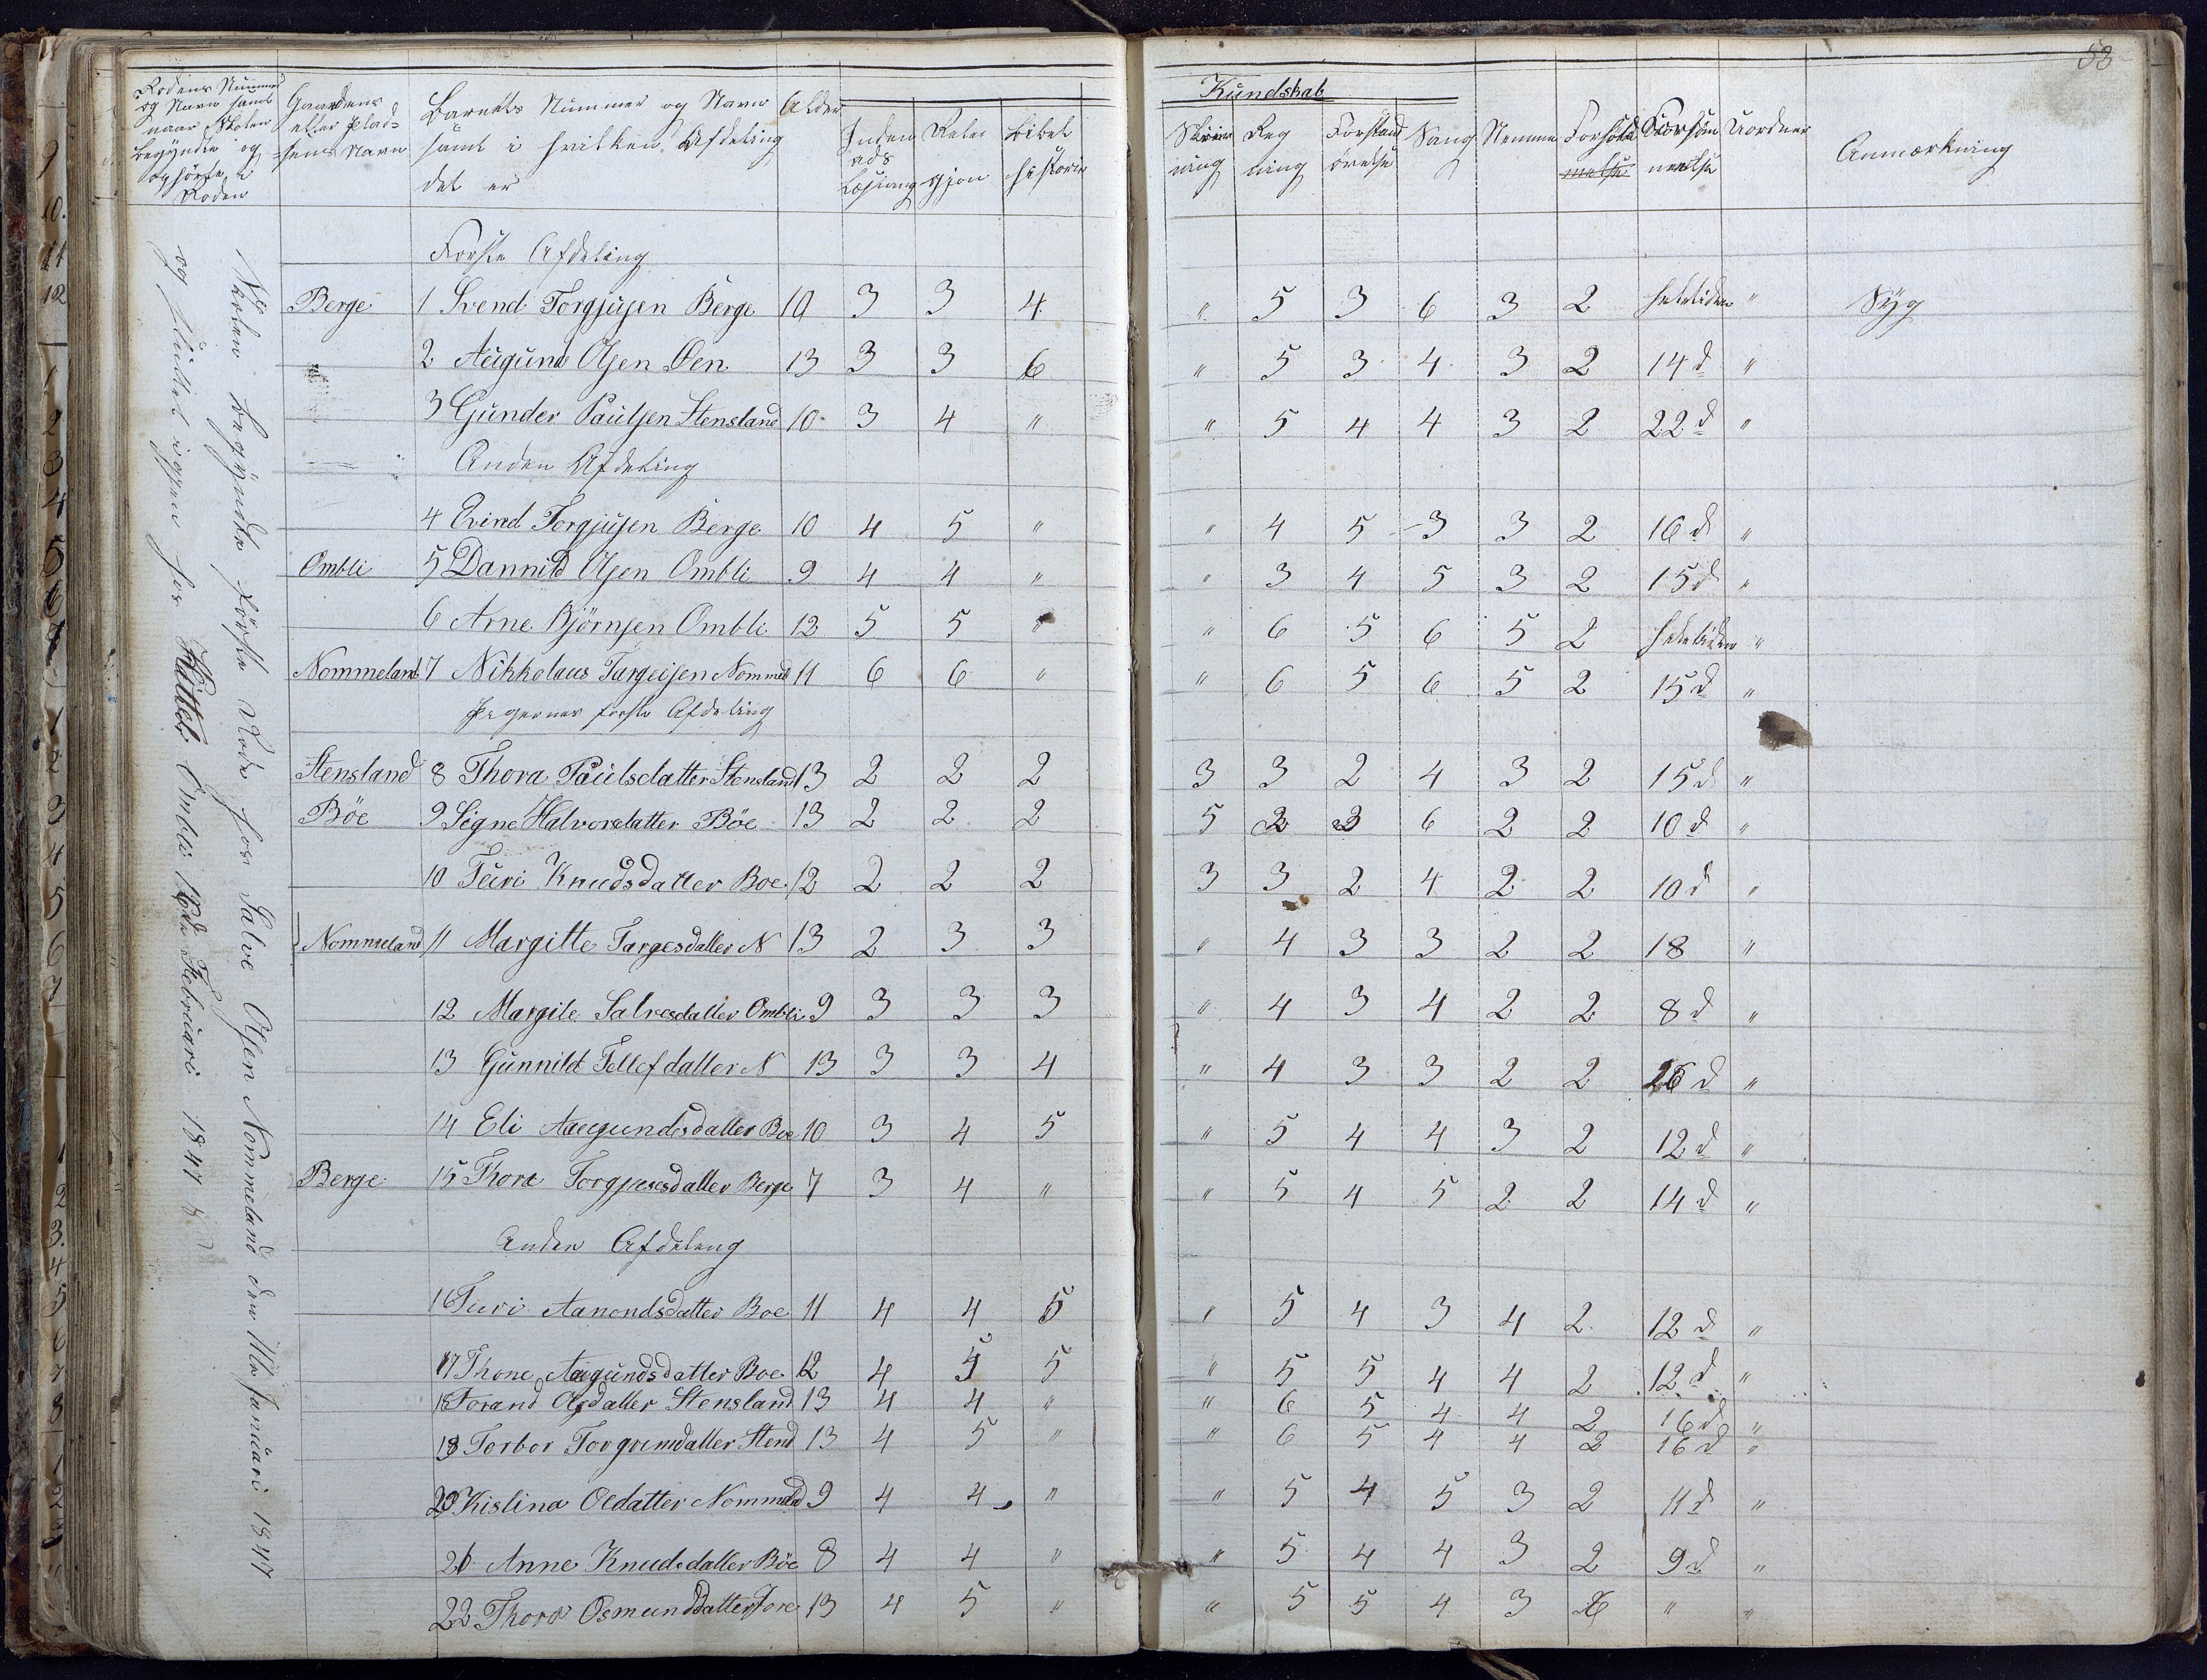 53
Rodens Nummer og Navn samt naar Skolen begyndte og ophörte i Roden
Gaardens eller Pladsens Navn
Barnets Nummer og Navn samt i hvilken Afdeling det er
Alder
Indenads Læsning
Religjon
Bibelhistorie
Kundskab
Skrivning
Regning
Forstandövelse
Sang
Nemme
Forhold
Forsömmelse
Uorden
Anmærkning
Skolen begyndte förste Rode hos Salve Olsen Nommeland den 11te Januari 1847
og sluttet igjen hos Kittel Ombli Februari 1847
Forste Afdeling
Berge 1 Svend Torgjusen Berge 10 3 3 4 " 5 3 6 3 2 heletiden " Syg
2 Augund Olsen Øen 13 3 3 6 " 5 3 4 3 2 14 d "
3 Gunder Paulsen Stensland 10 3 4 " " 5 4 4 3 2 22 d "
Anden Afdeling
4 Evind Torgjusen Berge 10 4 5 " " 4 5 3 3 2 16 d "
Ombli 5 Dannild Olsen Ombli 9 4 4 " " 3 4 5 3 2 15 d "
6 Arne Björnsen Ombli 12 5 5 " " 6 5 6 5 2 heletiden "
Nommeland 7 Nikkolaus Targeisen Nommel 11 6 6 " " 6 5 6 5 2 15 d "
Pigernes forste Afdeling
Stensland 8 Thora Paulsdatter Stensland 13 2 2 2 3 3 2 4 3 2 15 d "
Böe 9 Signe Halvorsdatter Böe 13 2 2 2 5 2 3 6 2 2 10 d "
10 Turi Knudsdatter Boe 12 2 2 2 3 3 2 4 2 2 10 d "
Nommeland 11 Margitte Targesdatter N 13 2 3 3 " 4 3 3 2 2 18 "
12 Margite Salvesdatter Ombli 9 3 3 3 " 4 3 4 2 2 8 d "
13 Gunnild Tellefdatter N 13 3 3 4 " 4 3 3 2 2 26 d "
14 Eli Augundsdatter Boe 10 3 4 5 " 5 4 4 3 2 12 d "
Berge 15 Thora Torgjusesdatter Berge 7 3 4 " " 5 4 5 2 2 14 d "
Anden Afdeleng
16 Turi Aanondsdatter Boe 11 4 4 5 " 5 4 3 4 2 12 d "
17 Thone Augundsdatter Boe 12 4 5 5 " 5 5 4 4 2 12 d "
18 Torand Olsdatter Stensland 13 4 4 " " 6 5 4 4 2 16 d "
19 Torbor Torgrimdatter Stend 13 4 5 " " 6 5 4 4 2 16 d "
20 Kislina Oledatter Nommeld 9 4 4 " " 5 4 5 3 2 11 d "
21 Anne Knudsdatter Böe 8 4 4 " " 5 4 4 3 2 9 d "
22 Thora Osmunddatter 13 4 5 " " 5 5 4 3 2 " "